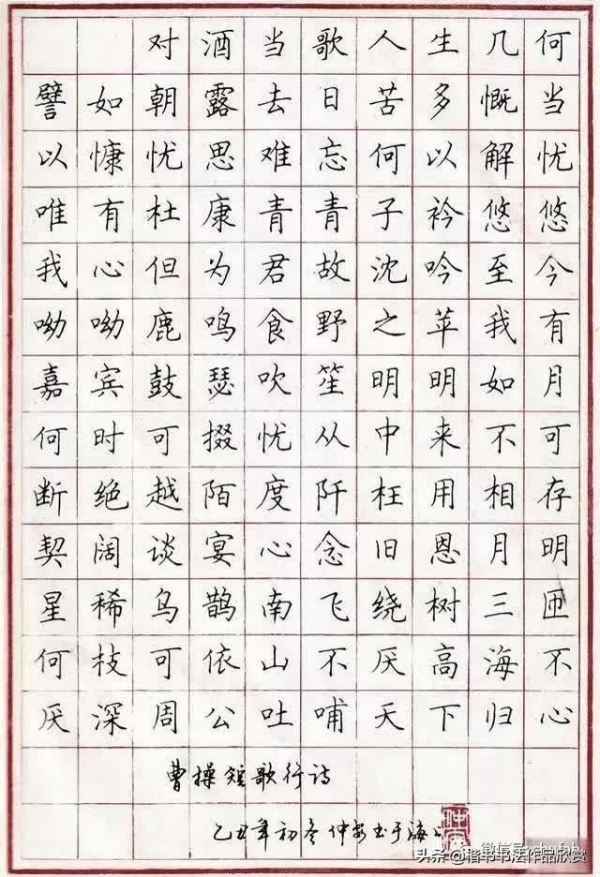 对酒当歌人生几何
譬如朝露去日苦多慨当
以慷忧思难忘何以解忧
唯有杜康青青子衿悠悠
我心但为君故沈吟至今
呦呦鹿鸣食野之苹我有
嘉宾鼓瑟吹笙明明如月
何时可掇忧从中来不可
断绝越陌度阡枉用相存
契阔谈宴心念旧恩月明
星稀乌鹊南飞绕树三匝
何枝可依山不厌高海不
厌深周公吐哺天下归心
曹操短歌行诗
乙丑年初冬仲安书于海上
微信号
头条@楷书书法作品欣赏